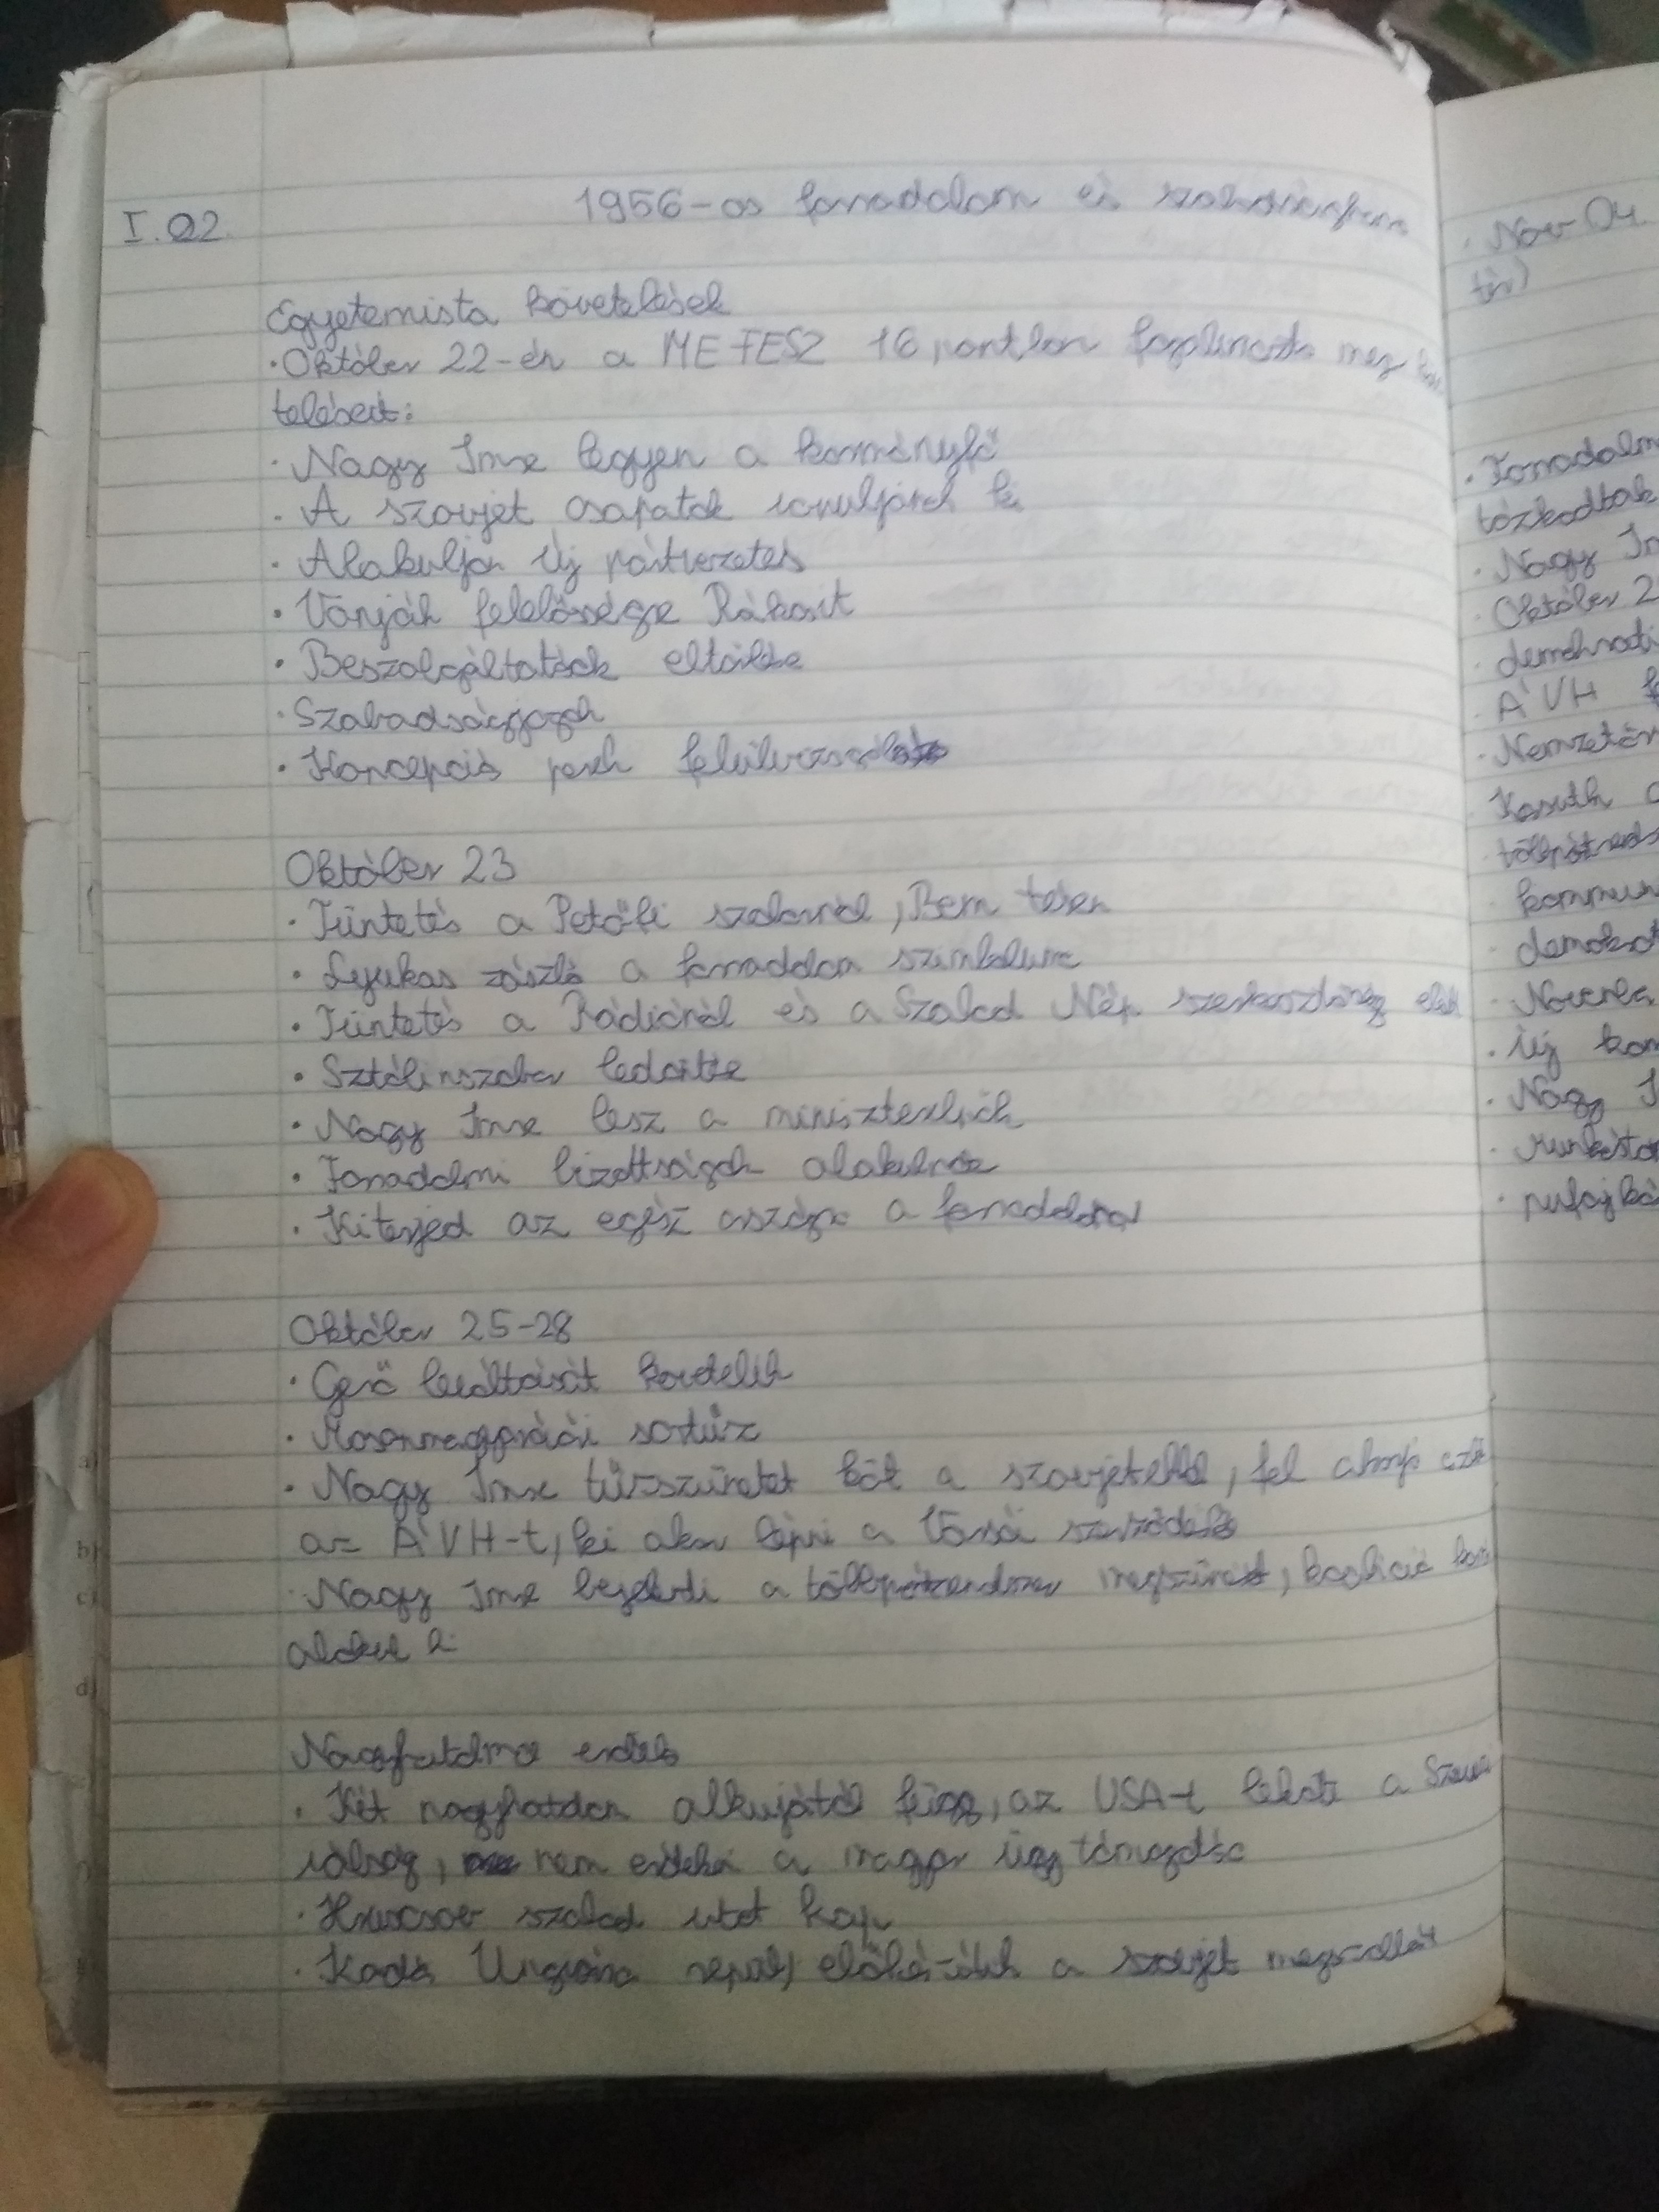 I. 02.
1956-os forradalom és szabadságharc
Egyetemista követelések
• Október 22-én a MEFESZ 16 pontban fogalmazta meg köv
teléseit:
• Nagy Imre legyen a kormányfő
• A szovjet csapatok vonuljanak ki
• Alakuljon új pártvezetés
• Vonják felelősségre Rákosit
• Beszolgáltatások eltörlése
• Szabadságjogok
• Koncepciós perek felülvizsgálata
Október 23
• Tüntetés a Petőfi szobornál, Bem téren
• Lyukas zászló a forradalom szimbóluma
• Tüntetés a Rádiónál és a Szabad Nép szerkesztőség előtt
• Sztálinszobor ledöntése
• Nagy Imre lesz a miniszterelnök
• Forradalmi bizottságok alakulnak
• Kiterjed az egész országra a forradalom
Október 25-28
• Gerő leváltását követelik
• Mosonmagyaróvári sortűz
• Nagy Imre tűzszünetet köt a szovjetekkel, fel akarja
az ÁVH-t, ki akar lépni a Varsói szerződésből
• Nagy Imre bejelenti a többpártrendszer megszűnését, koalíció
alakul ki
Nagyhatalmi érdekek
• Két nagyhatalom alkujától függ, az USA-t leköti a Szuezi
válság, nem érdeke a magyar ügy támogatása
• Hruscsov szabad utat kap
• Kádár Ungvárra repül, előkészítik a szovjet megszállást
• Nov 04.
tér)
• Nagy
• Október
• ÁVH
• Új
• Nagy